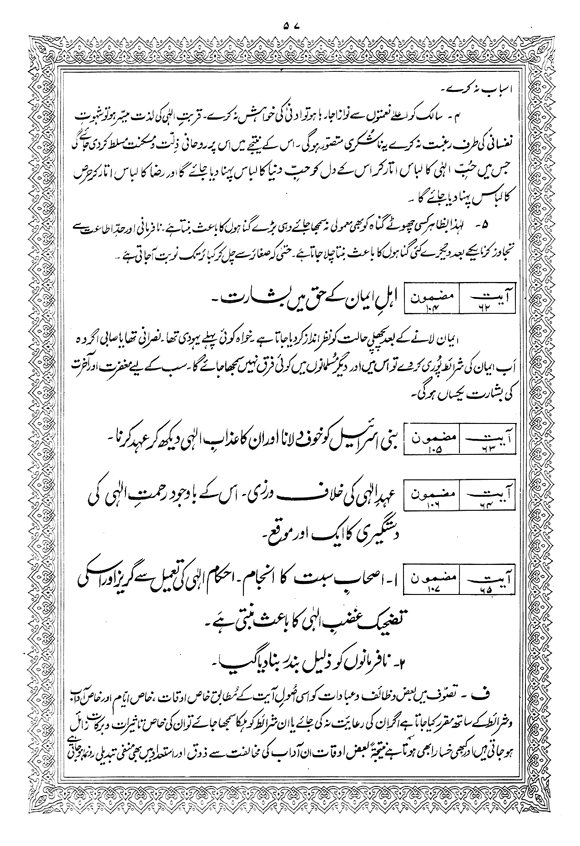 ۵۷
اسباب نہ کرے۔
۴۔ سالک کو اعلیٰ نعمتوں سے نوازا جا رہا ہو تو ادنیٰ کی خواہش نہ کرے۔ قربتِ الٰہی کی لذت میسّر ہو تو شہوتِ
نفسانی کی طرف رغبت نہ کرے یہ ناشکری متصور ہوگی۔ اس کے نتیجے میں اس پر روحانی ذلّت و مسکنت مسلط کر دی جائے گی
جس میں حُبِّ الٰہی کا لباس اتار کر اس کے دل کو حبِّ دنیا کا لباس پہنا دیا جائے گا اور رضا کا لباس اتار کر حرص
کا لباس پہنا دیا جائے گا۔
۵۔ لہٰذا بظاہر کسی چھوٹے گناہ کو بھی معمولی نہ سمجھا جائے وہی بڑے گناہوں کا باعث بنتا ہے۔ نافرمانی اور حدِّ اطاعت سے
تجاوز کرنا یکے بعد دیگرے کئی گناہوں کا باعث بنتا چلا جاتا ہے۔ حتیٰ کہ صغائر سے چل کر کبائر تک نوبت آجاتی ہے۔
آیت ۶۲ مضمون ۱۰۴ اہلِ ایمان کے حق میں بشارت۔
ایمان لانے کے بعد پچھلی حالت کو نظر انداز کر دیا جاتا ہے۔ خواہ کوئی پہلے یہودی تھا۔ نصرانی تھا یا صابی اگر وہ
اب ایمان کی شرائط پوری کر دے تو اس میں اور دیگر مسلمانوں میں کوئی فرق نہیں سمجھا جائے گا۔ سب کے لیے مغفرت اور آخرت
کی بشارت یکساں ہوگی۔
آیت ۶۳ مضمون ۱۰۵ بنی اسرائیل کو خوف دلانا اور ان کا عذابِ الٰہی دیکھ کر عہد کرنا۔
آیت ۶۴ مضمون ۱۰۶ عہدِ الٰہی کی خلاف ورزی۔ اس کے باوجود رحمتِ الٰہی کی
دستگیری کا ایک اور موقع۔
آیت ۶۵ مضمون ۱۰۷ ۱۔ اصحابِ سبت کا انجام۔ احکامِ الٰہی کی تعمیل سے گریز اور اسکی
تضحیک غضبِ الٰہی کا باعث بنتی ہے۔
۲۔ نافرمانوں کو ذلیل بندر بنا دیا گیا۔
ف ۔ تصوّف میں بعض وظائف و عبادات کو اسی اُصولِ آیت کے مُطابق خاص اوقات، خاص ایّام اور خاص آداب
و شرائط کے ساتھ مقرر کیا جاتا ہے اگر ان کی رعایت نہ کی جائے یا ان شرائط کو ہلکا سمجھا جائے تو ان کی خاص تاثیرات و برکات زائل
ہو جاتی ہیں اور کبھی خسارا بھی ہوتا ہے نتیجۃً بعض اوقات ان آداب کی مخالفت سے ذوق اور استعداد میں بھی منفی تبدیلی رونما ہو جاتی ہے